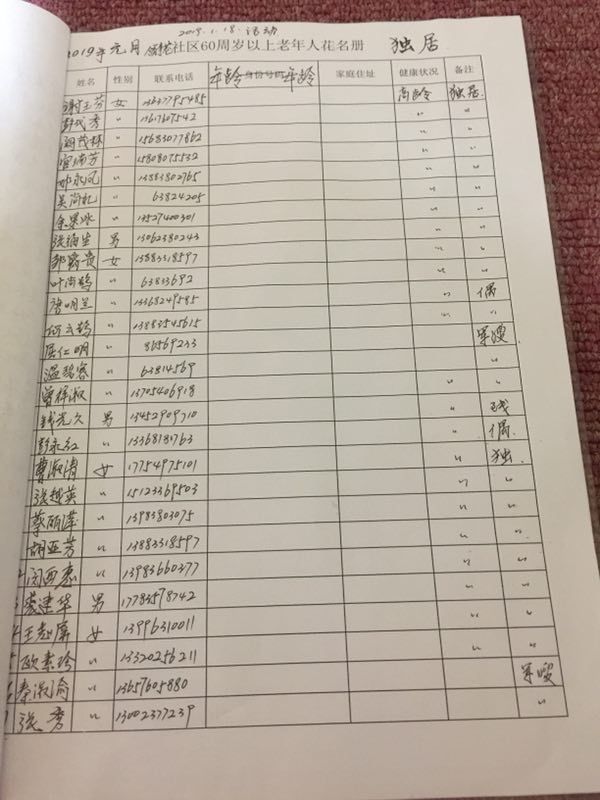 2019.1.18.活动
2019年元月 社区60周岁以上老年人花名册 独居
姓名 性别 联系电话 年龄 身份号码 年龄 家庭住址 健康状况 备注
谢玉芬 女 13637795485 高龄 独居.
彭代秀 〃 〃 〃
阎茂林 〃 15683077862 〃 〃
官瑞芳 〃 15808075532 〃 〃
邓永凤 〃 13883802765 〃 〃
吴尚礼 〃 63824205 〃 〃
余果冰 〃 13527400301 〃 〃
张福生 男 13062380243 〃 〃
郭露贵 女 13883318597 〃 〃
叶尚鹄 〃 63833692 〃 〃
唐明兰 〃 13368249585 〃 偶
何云鹄 〃 13883545615 〃 〃
屈仁明 〃 86569233 军嫂
温瑞容 〃 63814569 〃
曾梓淑 〃 13705406918 〃 〃
钱光久 男 13452909710 〃 残
彭永红 〃 13368181763 〃 偶
曹淑清 女 17754975101 〃 独.
张越英 〃 15123369503 〃 〃
蔡丽萍 〃 13983803075 〃 〃
胡亚芳 〃 13883318597 〃 〃
闵西惠 〃 13983660377 〃 〃
裘建华 男 17783578742 〃 〃
王起屏 女 13996310011 〃 〃
欧素珍 〃 13320256211 〃 〃
秦淑渝 〃 13657605880 军嫂
张秀 〃 13002377239 〃